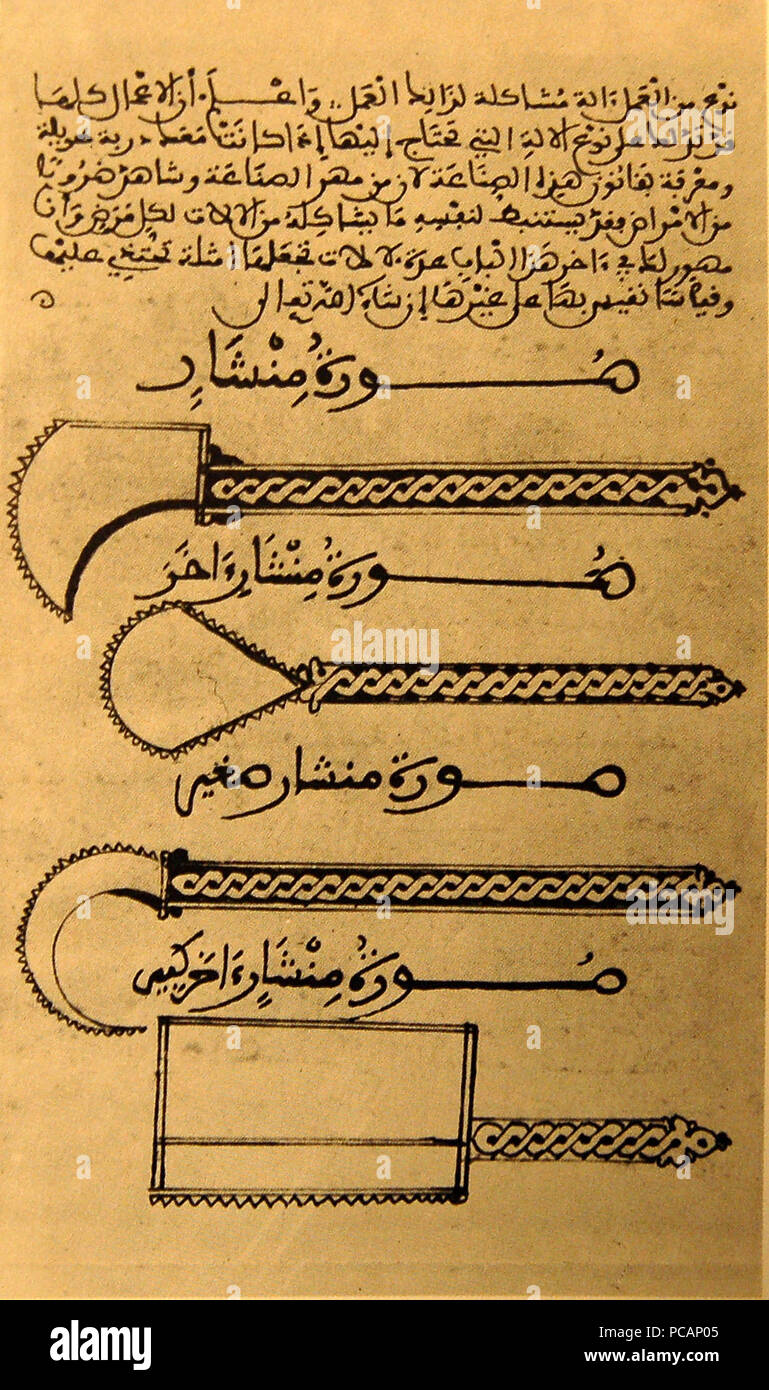 نوع من العمل ءالة مشاكلة لذالك العمل .. واعلم أن الاعمال كلها
قد تدلك على نوع الالة التي تحتاج إليها إذا كانت معك دربة طويلة
ومعرفة بقانون هذه الصناعة لان من مهر الصناعة وشاهد ضروبا
من الامراض فقد يستنبط لنفسه ما يشاكله من الالات لكل مرض وأنا
مصور لك في ءاخر هذا الباب عدة ءالات تجعلها أمثلة تحتذي عليها
وقياسا تقيس بها على غيرها إن شاء الله تعالى
صورة منشار
صورة منشار ءاخر
صورة منشار صغير
صورة منشار ءاخر كبير
alamy
alamy
a
a
a
a
alamy
Image ID: PCAP05
www.alamy.com